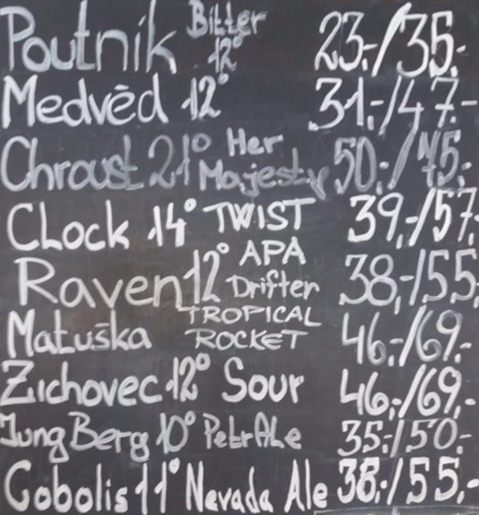 Poutník Bitter 12° 23,-/35,-
Medvěd 12° 31,-/47,-
Chroust 21° Her Majesty 50,-/75,-
CLock 14° TWIST 39,-/57,-
Raven 12° APA Drifter 38,-/55,
Matuška TROPICAL ROCKET 46,-/69,-
Zichovec 12° Sour 46,-/69,-
Jung Berg 10° Petr Ale 35,-/50,-
Cobolis 11° Nevada Ale 38,-/55,-